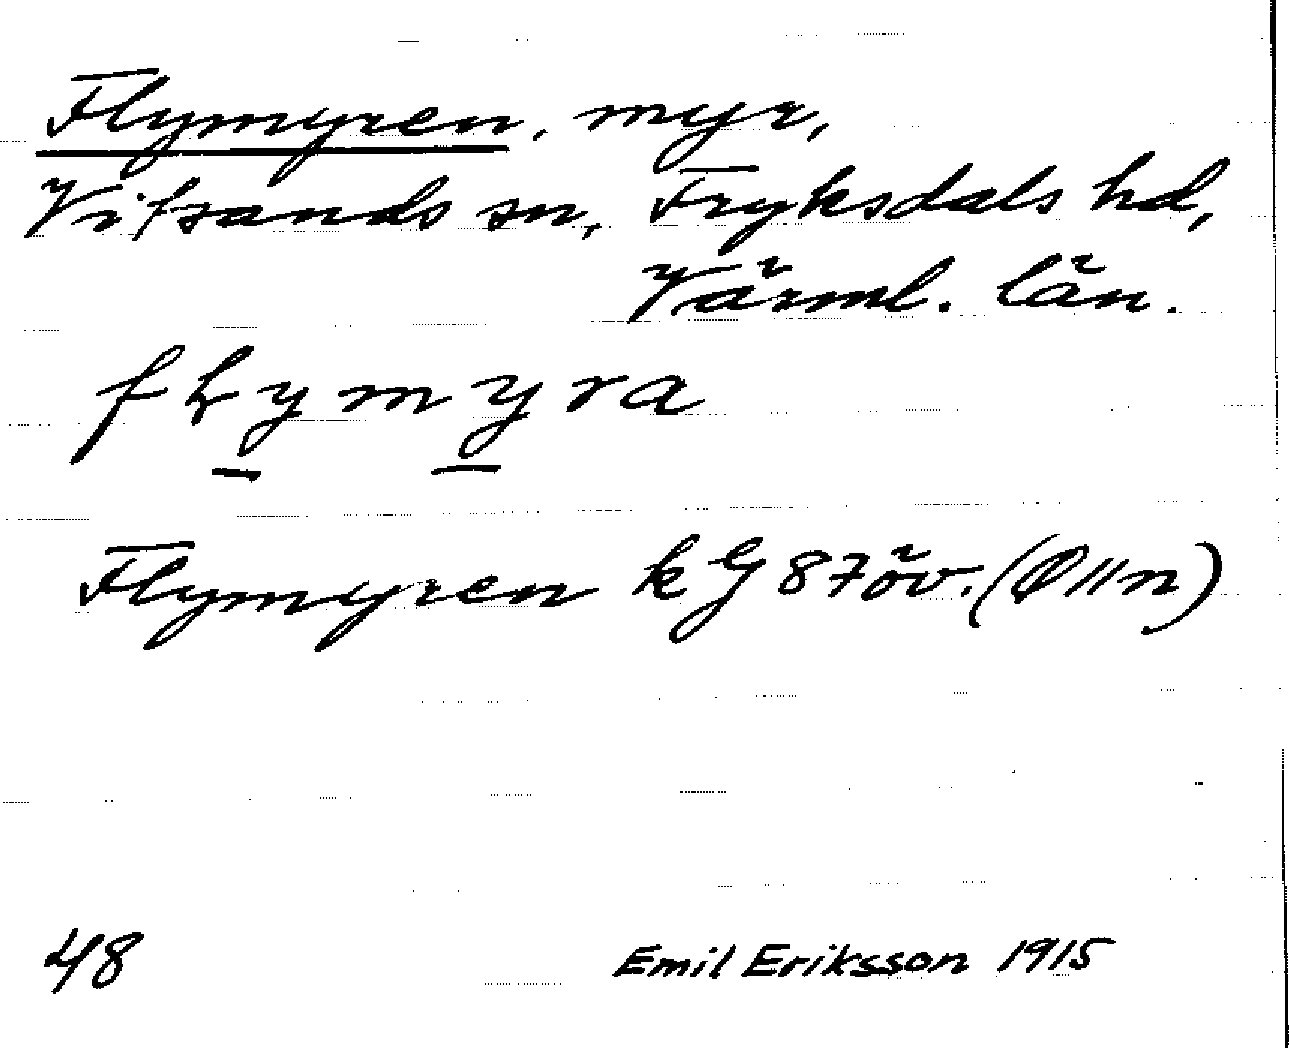 Flymyren, myr,
Vitsands sn, Fryksdals hd,
Värml. län.
fɫymyra
Flymyren k G 87 öv. (Olln)
48 Emil Eriksson 1915